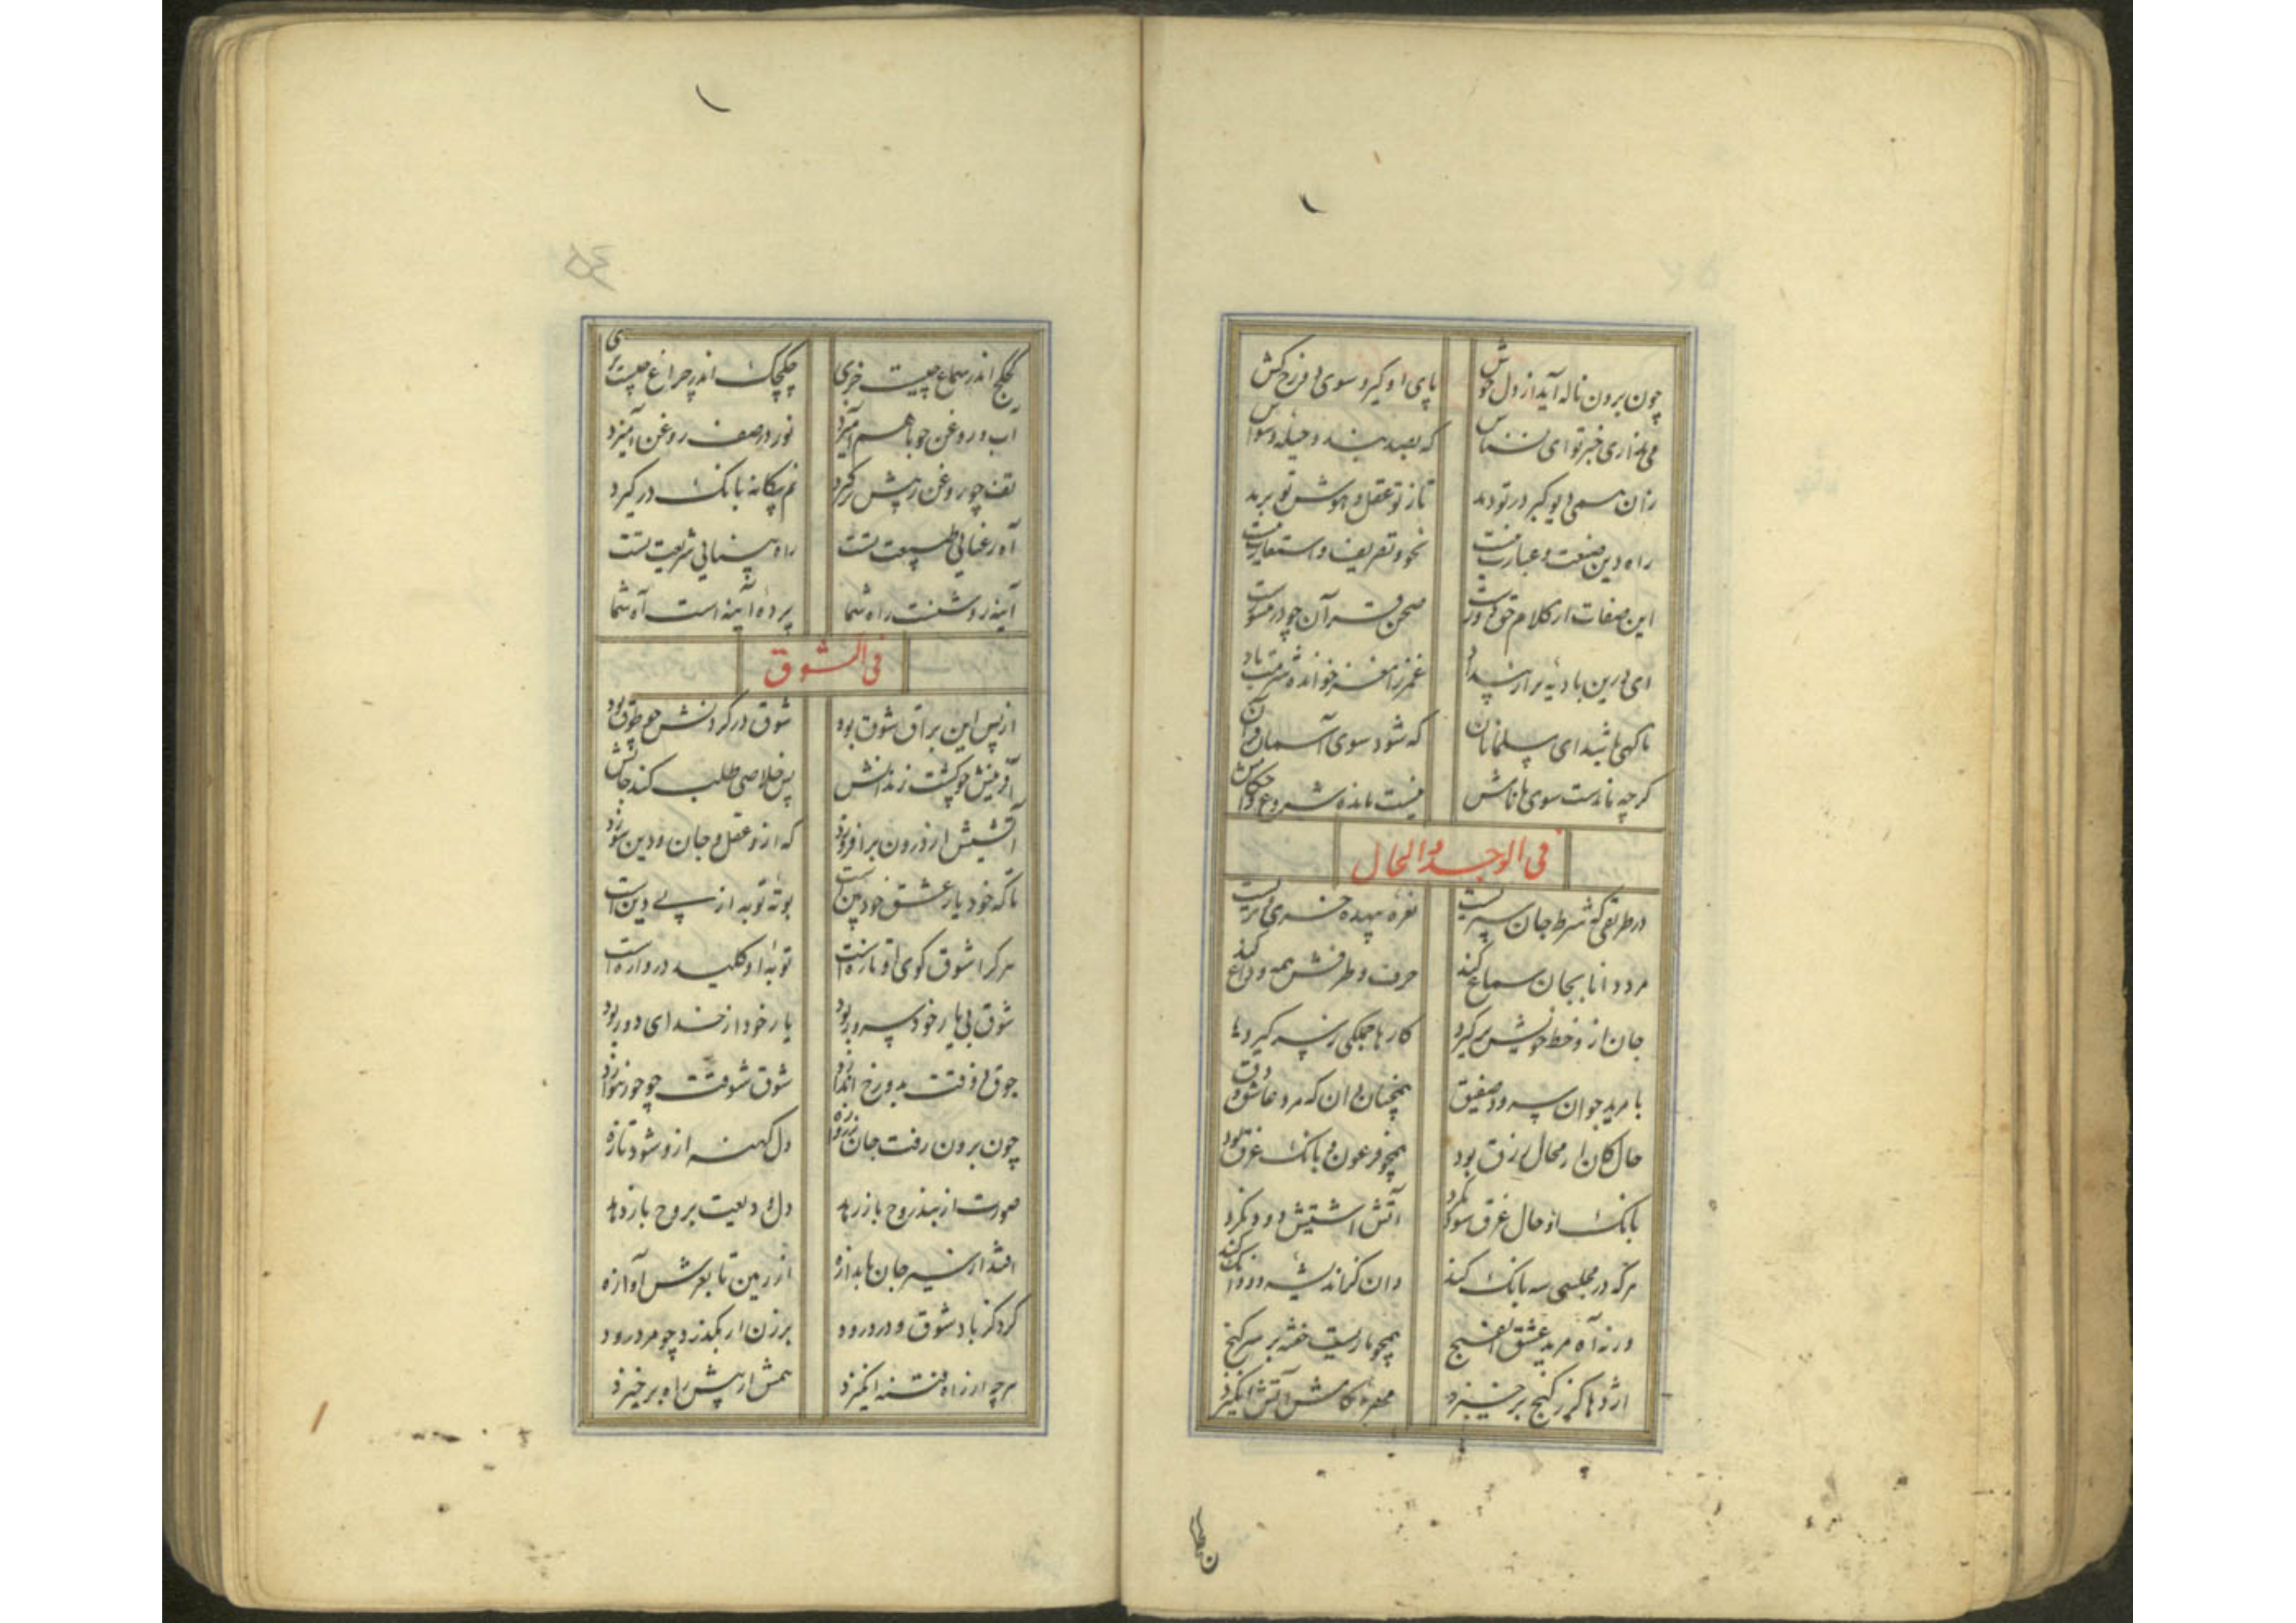 چون برون ناله آید از دل خوش
پای او گیرد سوی دوزخ کش
که بصد بند و حیله و وسواس
زان همی دیو کبر در تو دمد
تا ز تو عقل و هوش تو برمد
راه دین صنعت و عبارت نیست
نحو و تصریف و استعارت نیست
این صفات از کلام حق دورست
صحن قرآن چو در
که شود سوی آسمان قرآن
گرچه ماندست سوی ما نامش
نیست مانده شروع و احکامش
فی الوجد و الحال
در طریقی که شرط جان سپریست
نعره بیهده خری و تریست
مرد دانا بجان سماع کند
حرف و ظرفش همه وداع کند
جان ازو حظ خویش برگیرد
کارها جملگی ز سر گیرد
با مرید جوان سرود و شفیق
همچنان دان که مرد عاشق و دق
حال کان از محال و زرق بود
همچو فرعون و بانک غرق بود
بانک او حال غرق سود نکرد
آتش آشتیش دود نکرد
هرکه در مجلسی سه بانک کند
دان کز اندیشه دو دانک کند
ورنه آه مرید عشق الفنج
همچو ماریست خفته بر سر گنج
اژدها کو ز گنج برخیزد
مهره کامش آتش انگیزد
کخ کخ اندر سماع چیست خری
چکچک اندر چراغ چیست تری
آب و روغن چو با هم آمیزد
نور در صف روغن آویزد
تف چو روغن ز پیش برگیرد
نم بیگانه بانک درگیرد
آه رعنایی طبیعت تست
راه بینایی شریعت تست
آینه روشنست راه شما
پرده آینه است آه شما
فی الشوق
از پس این براق شوق بود
شوق در گردنش چو طوق بود
آفرینش چو گشت زندانش
پس خلاصی طلب کند جانش
آتشیش از درون برافروزد
که ازو عقل و جان و دین سوزد
تا که خود یار عشق خود بین است
بوته توبه از پی دین است
هرکرا شوق کوی او تازه است
توبه او کلید دروازه است
شوق بی یار خود سرور بود
یار خود از خدای دور بود
جوق بی ذوقت به دوزخ اندازد
شوق شوقت چو حور بنوازد
چون برون رفت جان ز دروازه
دل کهنه ازو شود تازه
صورت از بند روح باز رهد
دل ودیعت بروح باز دهد
افتد از سیر جان بانداره
از زمین تا بعرش آوازه
گرد کز باد شوق و درد رود
بر زن ار بگذرد چو مرد رود
هرچه از راه فتنه انگیزد
همش از پیش راه برخیزد